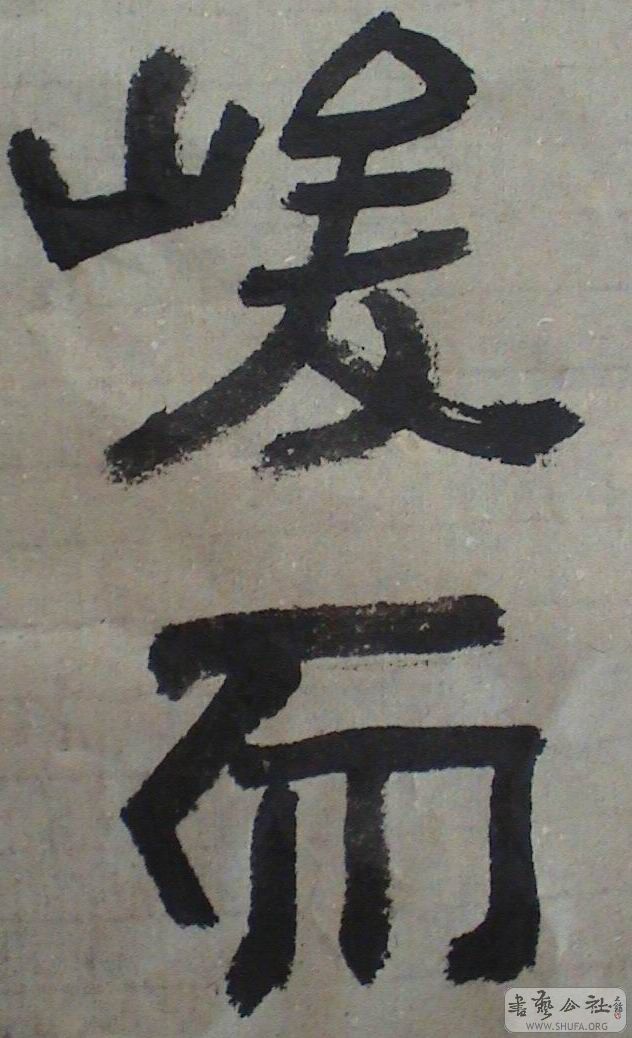 峻而
書藝公社
WWW.SHUFA.ORG